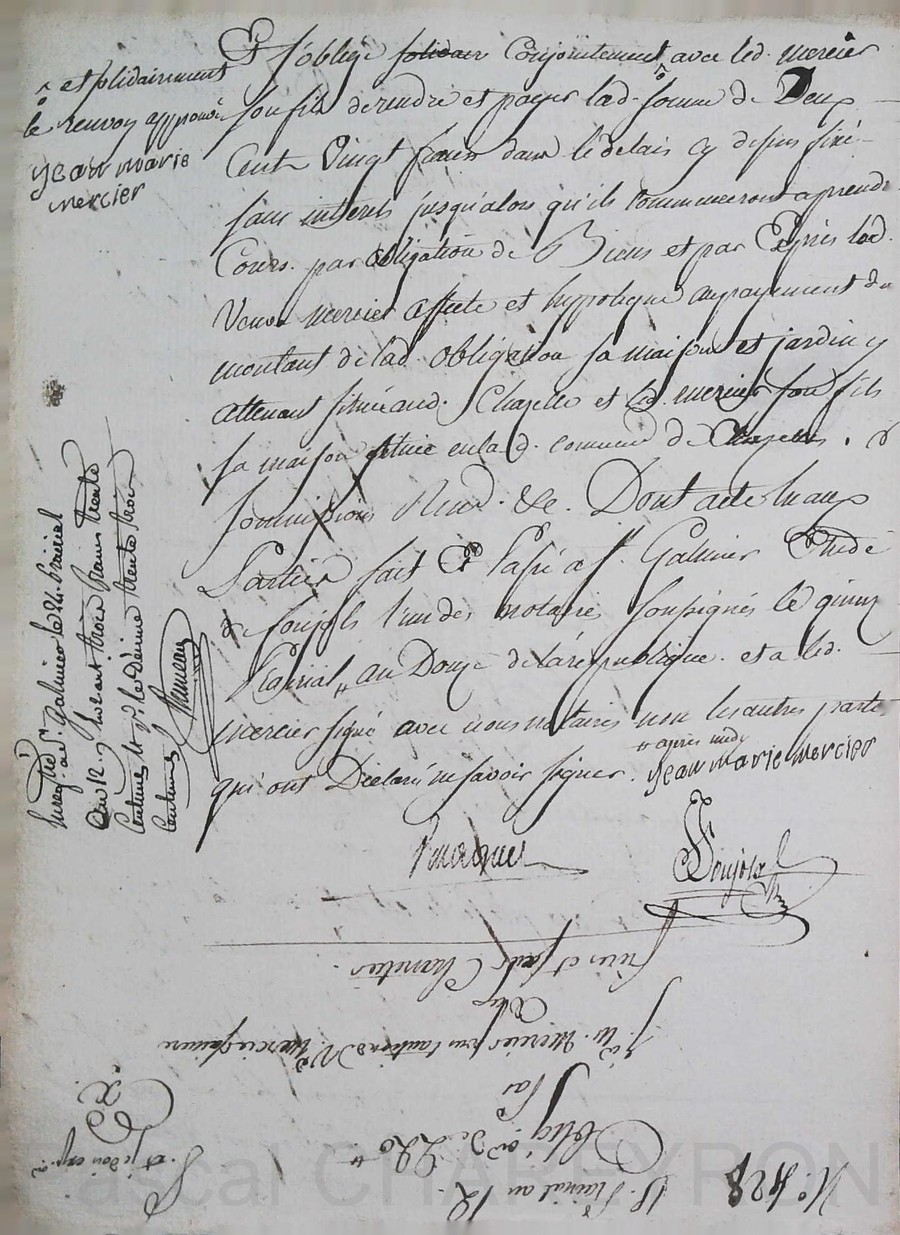 ^ et solidairement
le renvoy approuvé
jean marie
mercier
Et s'oblige solidair Conjointement ^ avec led. mercier
son fils de rendre et payer lad. somme de Deux
Cent Vingt francs dans le délais cy dessus fixé
sans interets jusqu'alors qu'ils commenceront a prendre
Cours. par obligation de Biens et par Exprès lad.
Veuve mercier affecte et hypoteque au payement du
montant de lad. obligation sa maison et jardin y
attenant situé aud. Chapelle et led. mercier son fils
sa maison située en lad. commune de Chapelle. &
soumissions Rend. &c. Dont acte lu aux
Parties fait Et Passé a St. Galmier Etude
de soujols l'un des notaires soussignés le quinze
Prairial " an Douze de la république. et a led.
mercier signé avec nous notaires non les autres parties
qui ont Déclaré ne savoir signer.
" après midy
jean marie mercier
Soujols
Enregtré. a St. Galmier le 24 prairial
an 12. Reçu deux francs trente
Centimes et pr. le Dixme trente trois
Centimes
N°. 428
15. Prairial an 12.
Oblig on De 220 "
Par
j. M. Mercier sous caution D Ve. Mercier sa mere
Aux
frères et Charretier.